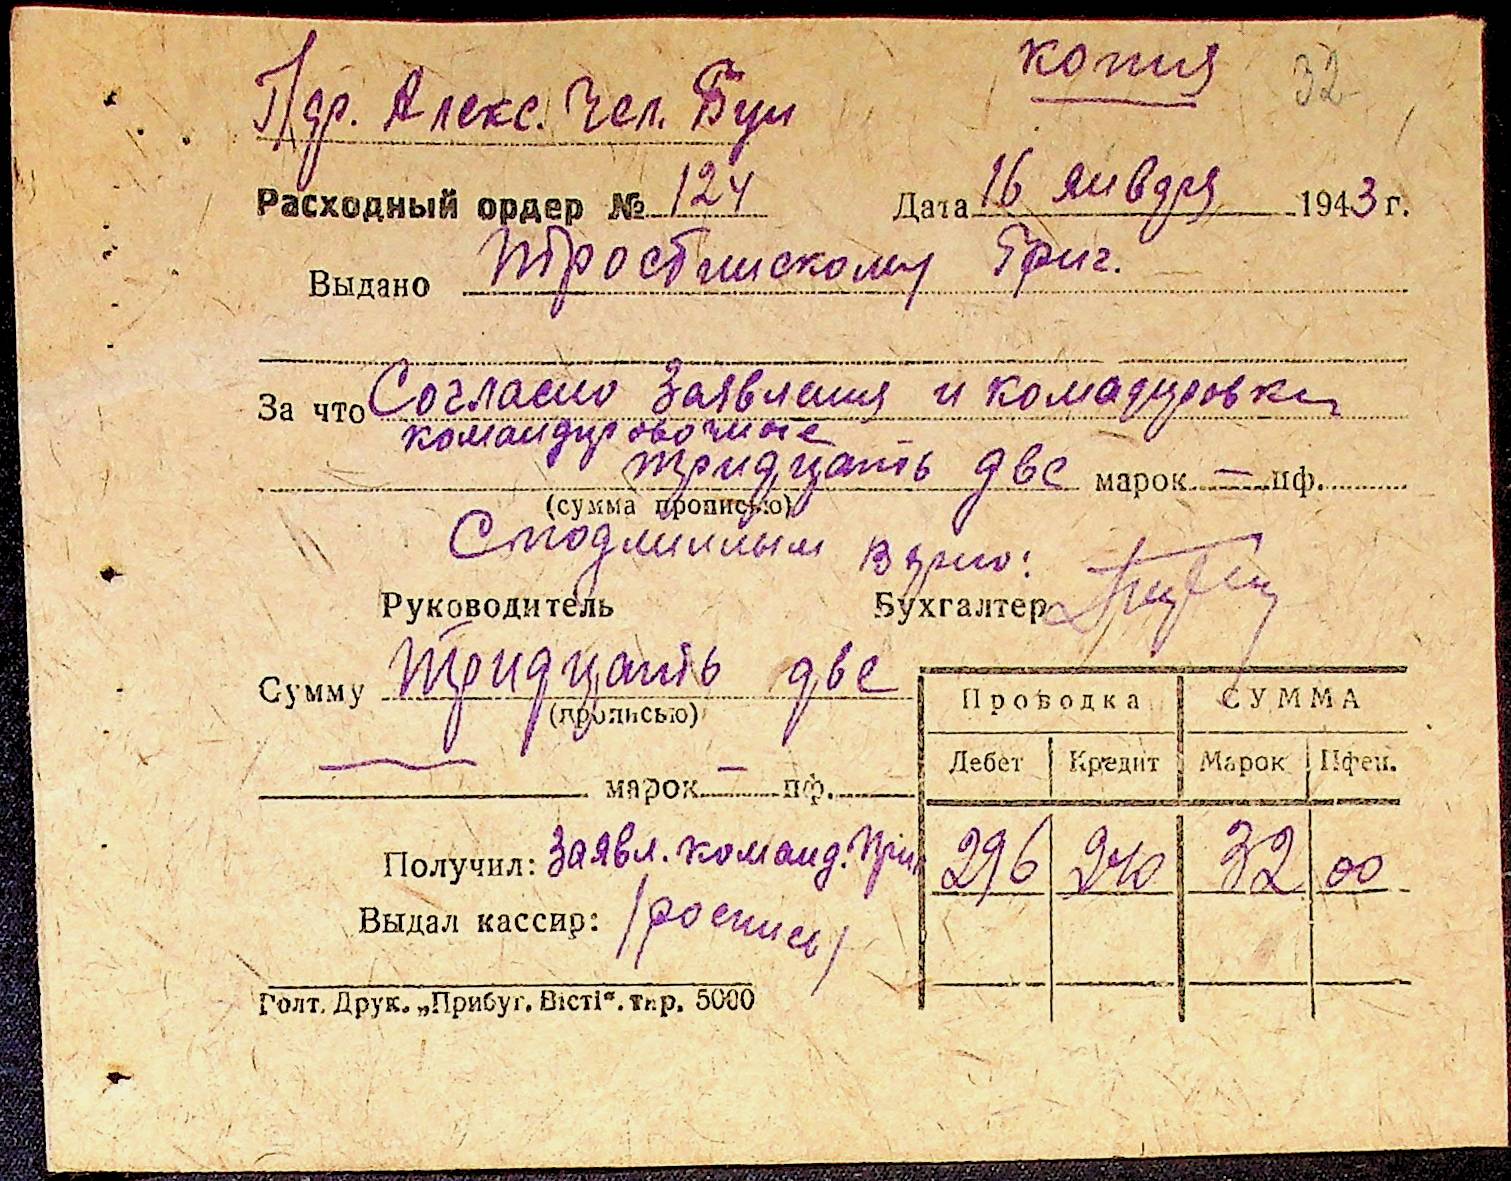 копия 32
Пдр. Алекс. Чел. Бум
Расходный ордер № 124 Дата 16 января 1943 г.
Выдано Тростянскому Григ.
За что Согласно Заявления и комадировки
командировочные
тридцать две марок — пф.
(сумма прописью)
С подлинным верно:
Руководитель Бухгалтер
Сумму тридцать две
(прописью)
марок — пф.
Проводка СУММА
Дебет Кредит Марок Пфен.
296 240 32 00
Получил: Заявл. команд. При
Выдал кассир: /роспись/
Голт. Друк. „Прибуг. Вісті“. тир. 5000